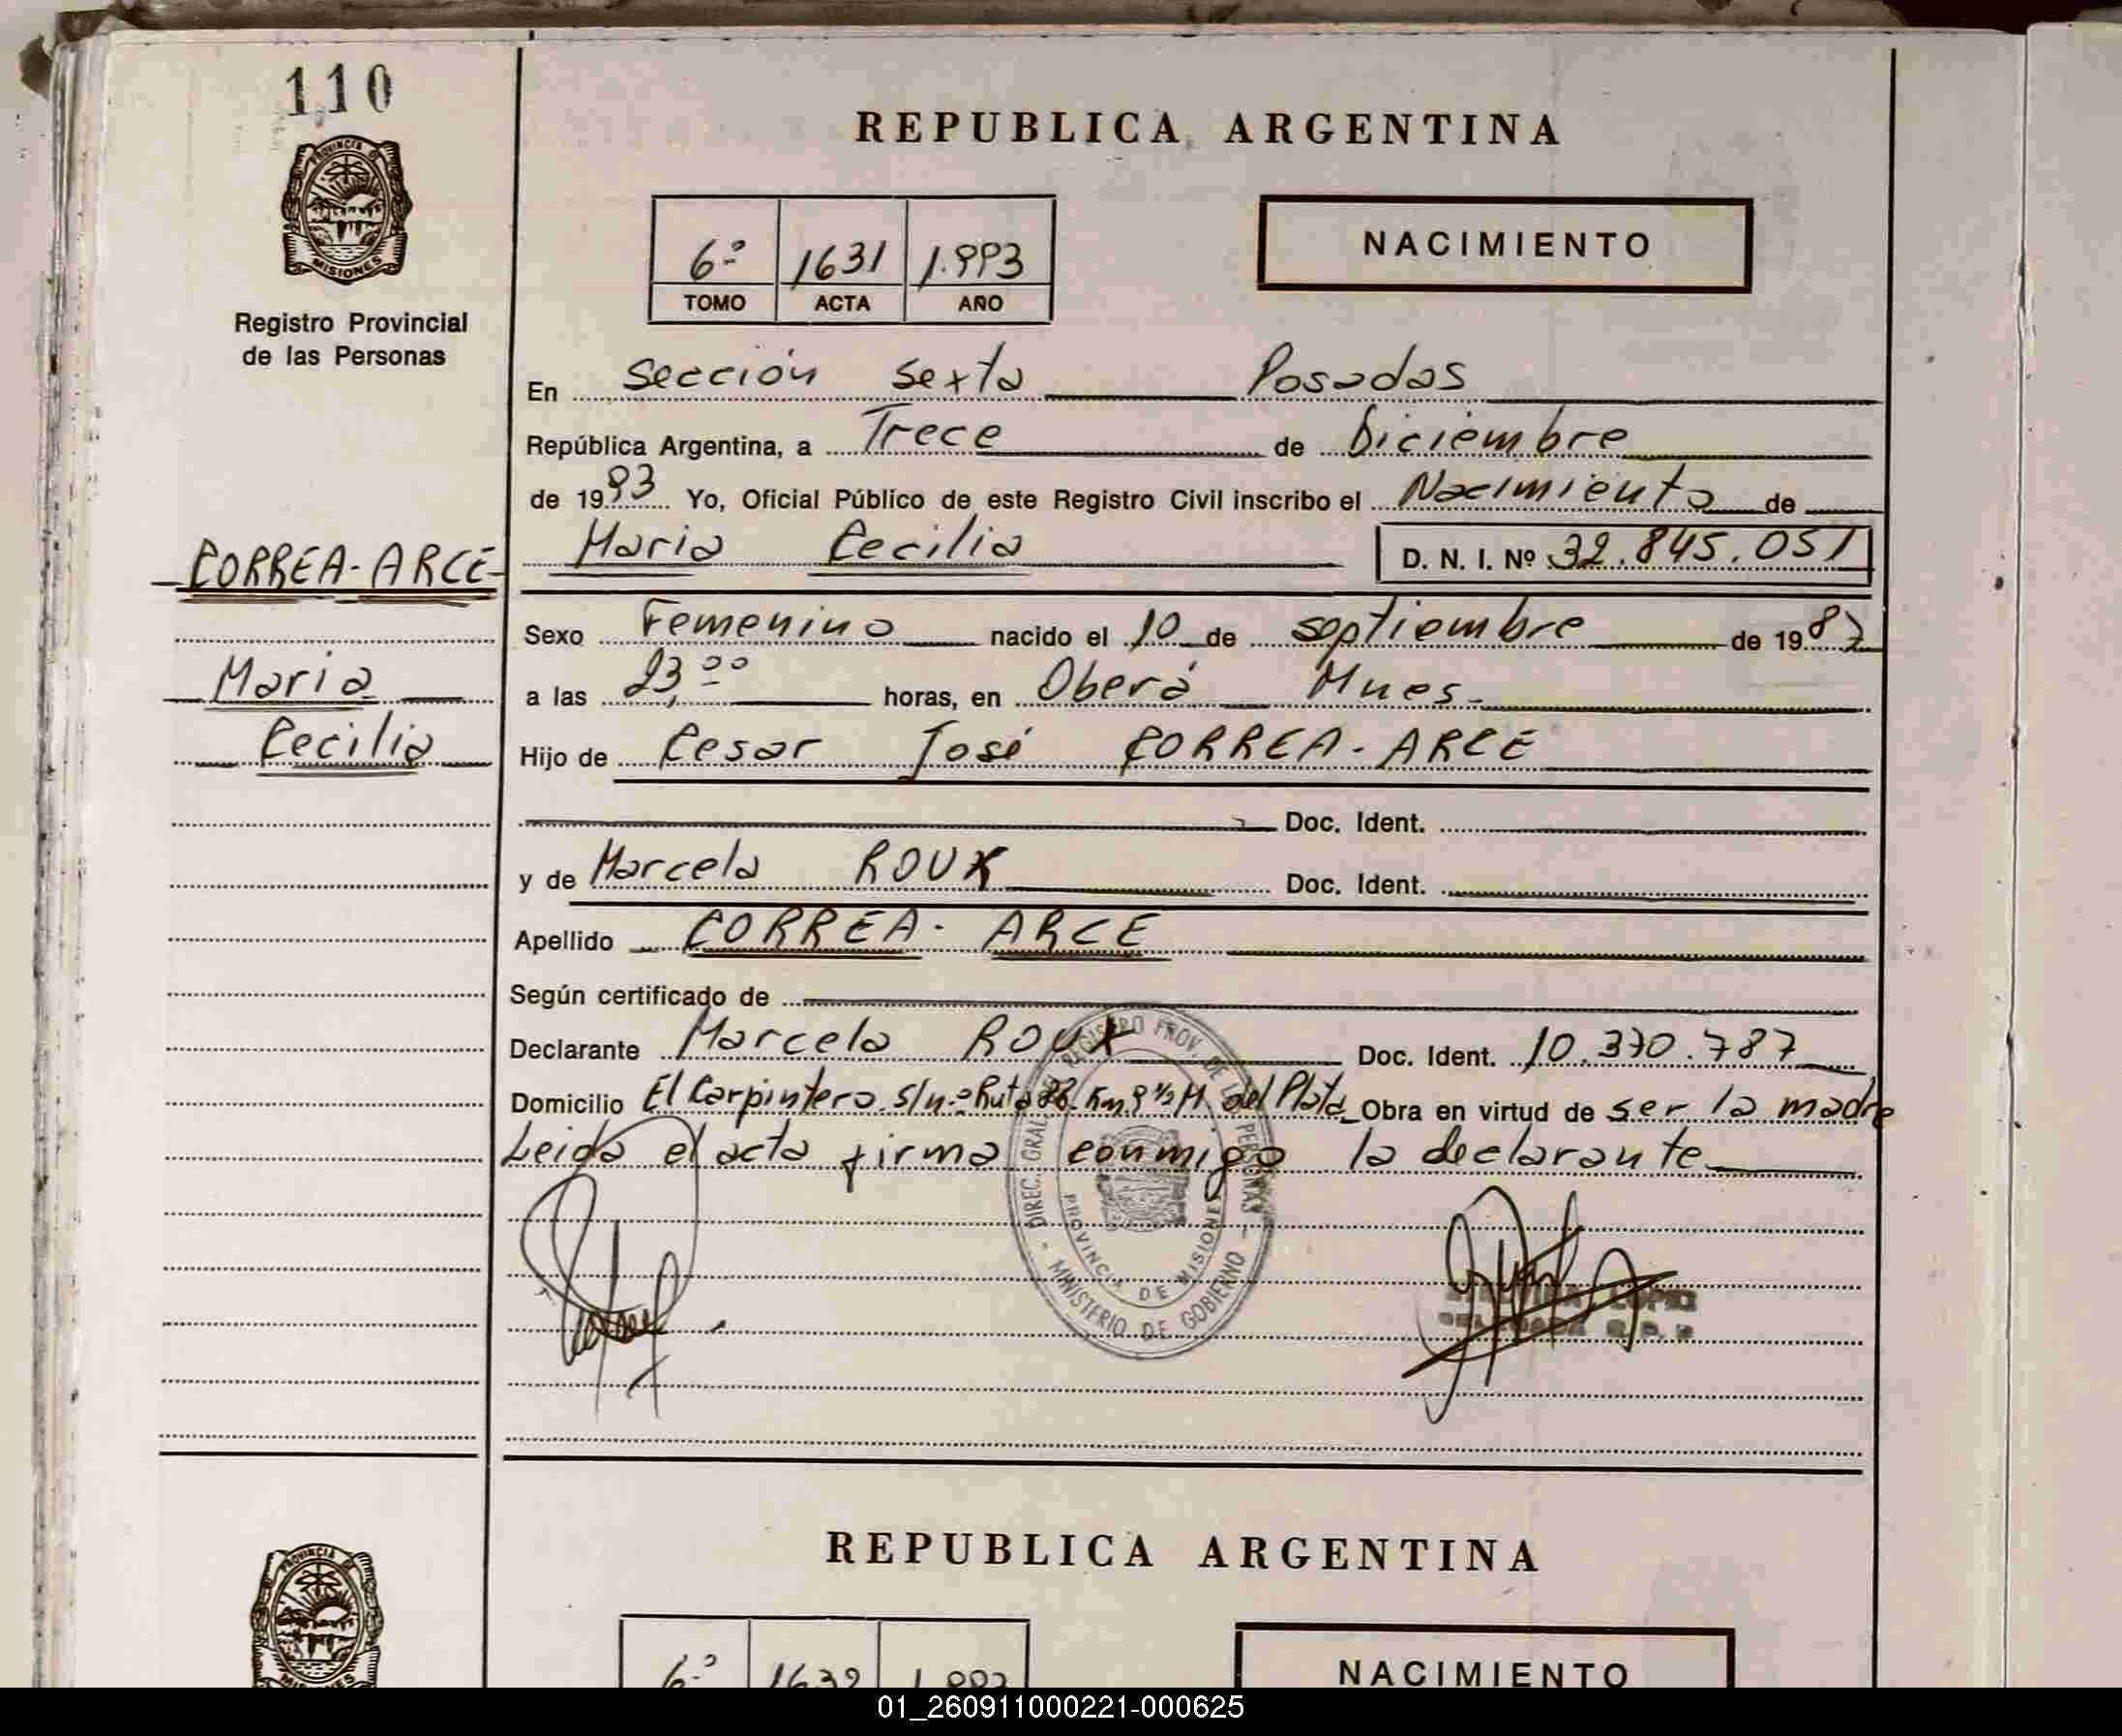 110
REPUBLICA ARGENTINA
PROVINCIA DE
MISIONES
Registro Provincial
de las Personas
6º 1631 1.993
TOMO ACTA AÑO
NACIMIENTO
En sección sexta Posadas
República Argentina, a Trece de Diciembre
de 1993 Yo, Oficial Público de este Registro Civil inscribo el Nacimiento de
CORREA-ARCE-
Maria Cecilia D. N. I. Nº 32.845.051
Sexo Femenino nacido el 10 de septiembre de 1987
Maria
a las 23,00 horas, en Oberá Mnes.
Cecilia
Hijo de Cesar José CORREA-ARCE
Doc. Ident.
y de Marcela ROUX Doc. Ident.
Apellido CORREA-ARCE
Según certificado de
Declarante Marcela ROUX Doc. Ident. 10.370.787
Domicilio El Carpintero s/nº Ruta Km 9 ½ M. del Plata Obra en virtud de ser la madre
Leida el acta firma conmigo la declarante
DIREC. GRAL. DEL REGISTRO PROV. DE LAS PERSONAS
PROVINCIA DE MISIONES
- MINISTERIO DE GOBIERNO -
LOPEZ
REPUBLICA ARGENTINA
PROVINCIA DE
MISIONES
6º 1632 1.993
NACIMIENTO
01_260911000221-000625